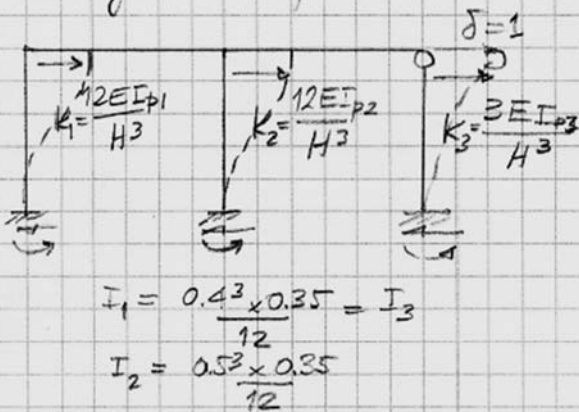 δ=1
K₁=12EIp1/H³
K₂=12EIp2/H³
K₃=3EIp3/H³
I₁ = 0.4³ x 0.35/12 = I₃
I₂ = 0.5³ x 0.35/12